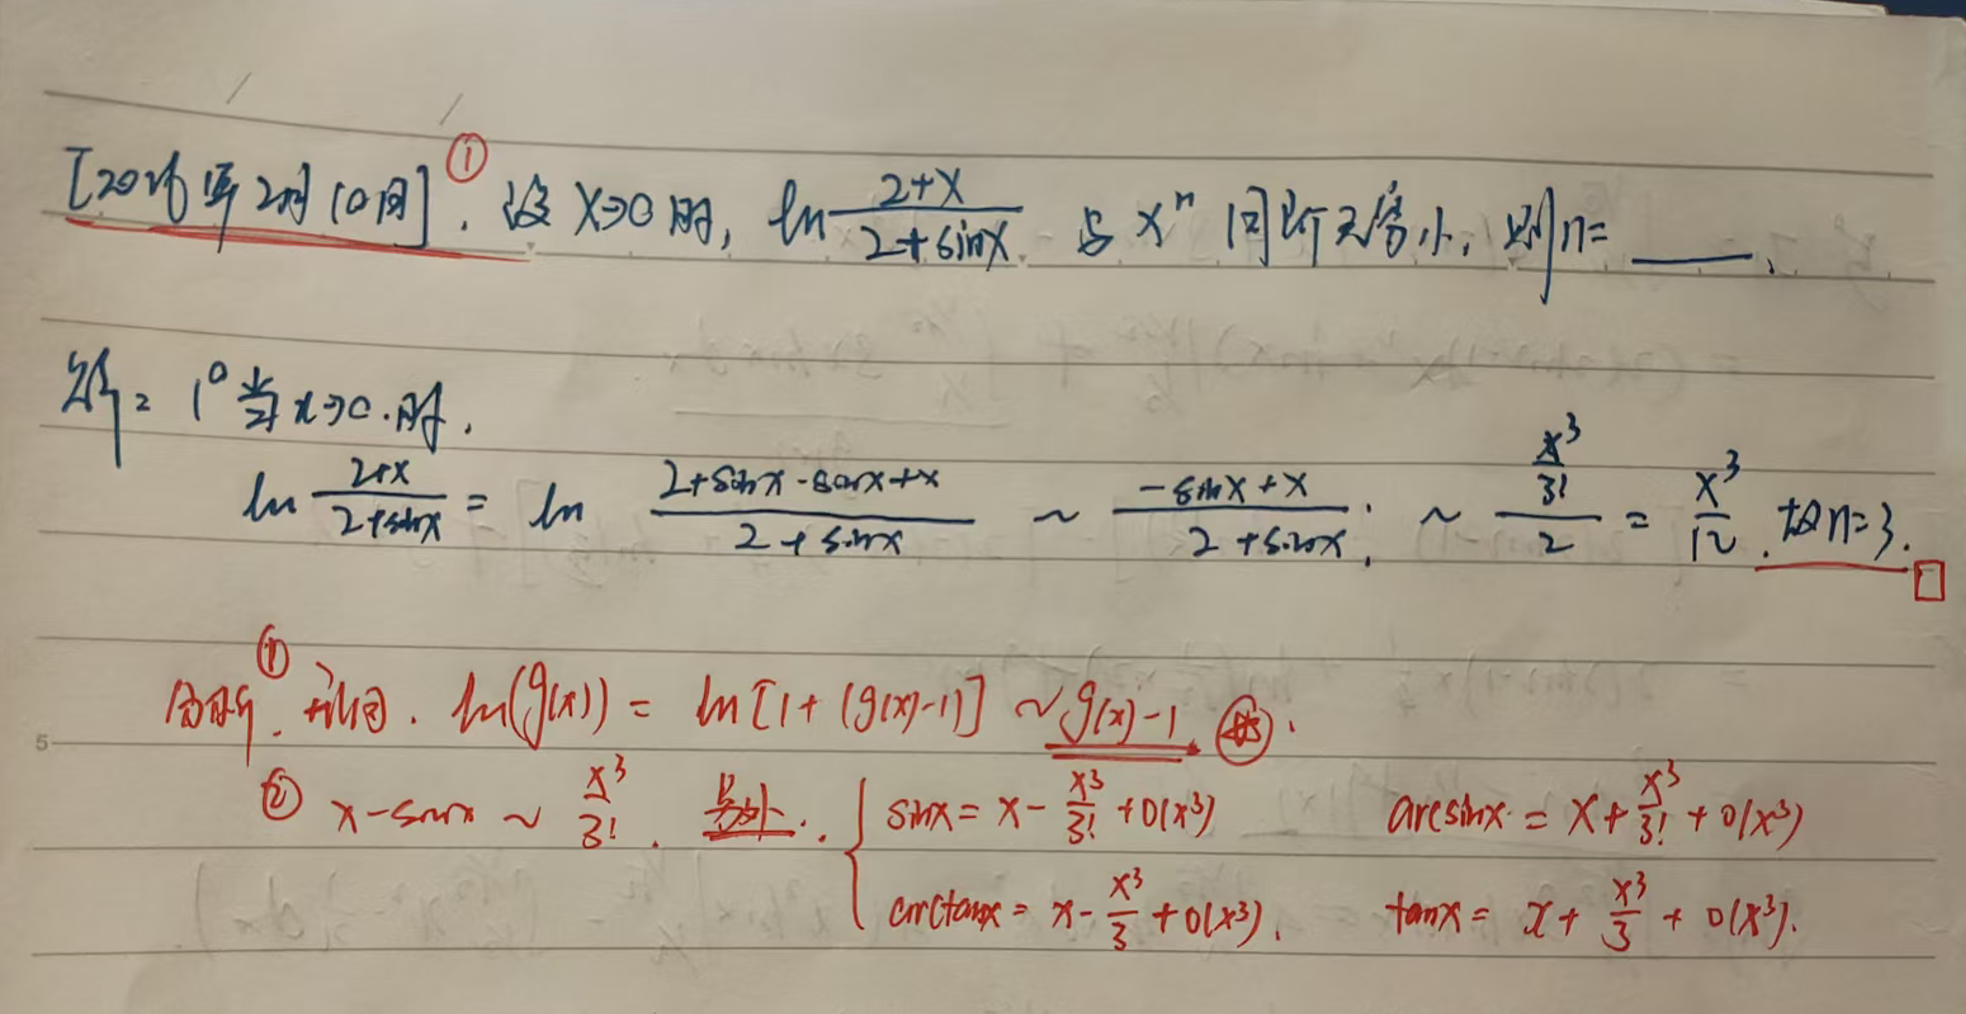 [2026年2月10日]. ① 设 x→0 时, ln (2+x)/(2+sinx) 与 xⁿ 同阶无穷小, 则 n= ____.
解: 1° 当 x→0 时,
ln (2+x)/(2+sinx) = ln (2+sinx-sinx+x)/(2+sinx) ~ (-sinx+x)/(2+sinx); ~ (x³/3!)/2 = x³/12. 故 n=3. □
① ln(g(x)) = ln[1+(g(x)-1)] ~ g(x)-1
② x-sinx ~ x³/3!. 另外. { sinx = x - x³/3! + o(x³) arcsinx = x + x³/3! + o(x³)
arctanx = x - x³/3 + o(x³), tanx = x + x³/3 + o(x³).
5